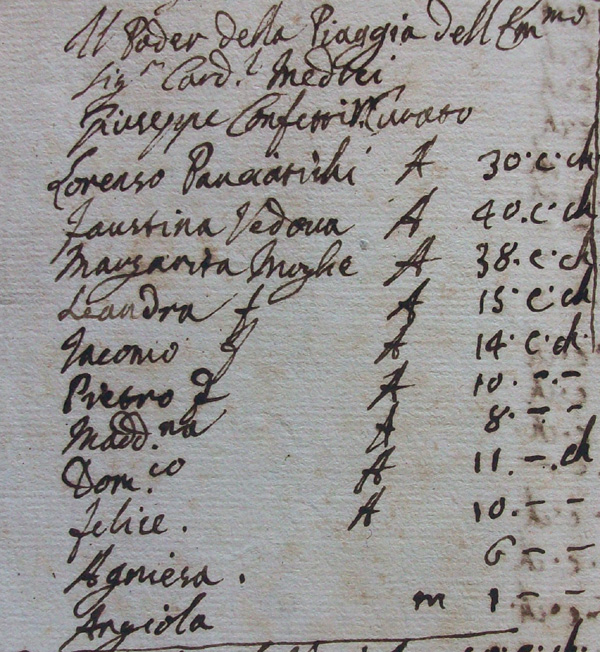 Il Poder della Piaggia dell Em^mo
Sig^r Card.^l Medici
Giuseppe Curato
Lorenzo Panciatichi A 30. c. ch
Faustina Vedoua A 40. c. ch
Margarita Moglie A 38. c. ch
Leandra f A 15. c. ch
Iacomo f A 14. c. ch.
Pietro f A 10. - -
Madd.^na A 8. - -
Dom.^co A 11. -. ch
Felice. A 10. - -
Agniesa. 6 - -
Angiola m 1 - -